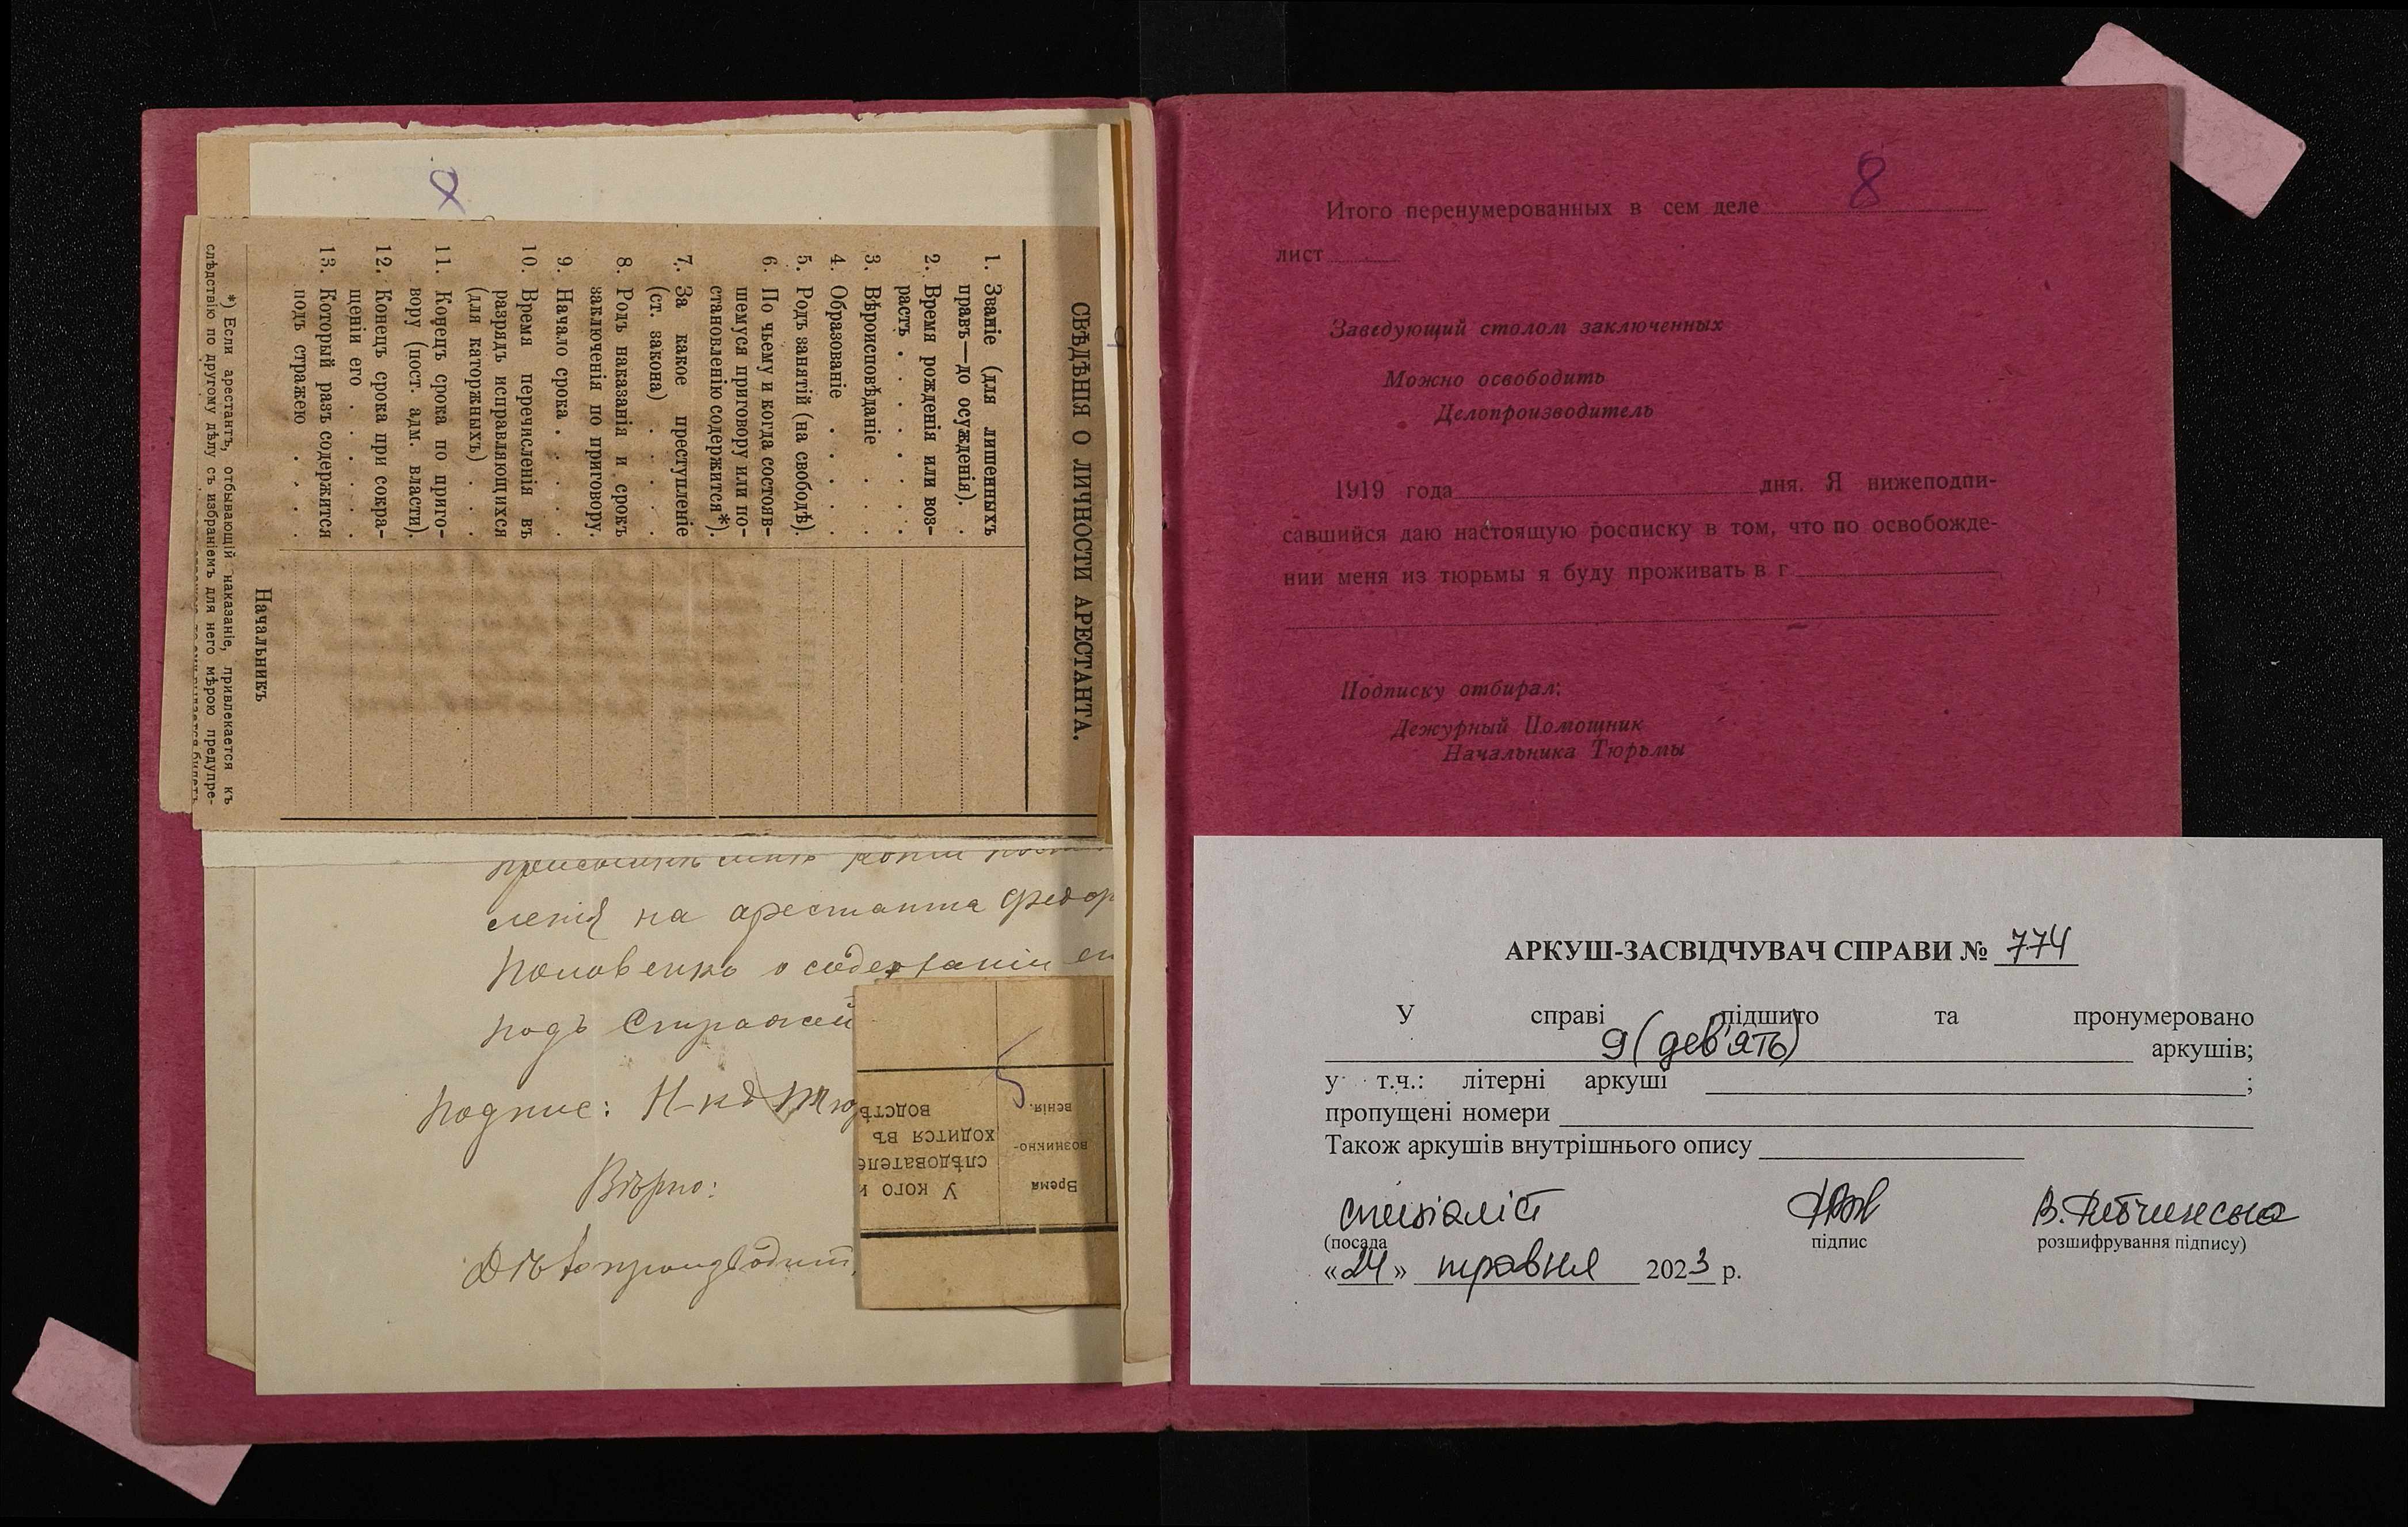 8
СВѢДѢНІЯ О ЛИЧНОСТИ АРЕСТАНТА.
1. Званіе (для лишенныхъ
правъ—до осужденія). .
2. Время рожденія или воз-
растъ . . . . . .
3. Вѣроисповѣданіе . .
4. Образованіе . . . .
5. Родъ занятій (на свободѣ).
6. По чьему и когда состояв-
шемуся приговору или по-
становленію содержится*).
7. За какое преступленіе
(ст. закона) . . . .
8. Родъ наказанія и срокъ
заключенія по приговору.
9. Начало срока . . . .
10. Время перечисленія въ
разрядъ исправляющихся
(для каторжныхъ) . . .
11. Конецъ срока по приго-
вору (пост. адм. власти).
12. Конецъ срока при сокра-
щеніи его . . . . .
13. Который разъ содержится
подъ стражею . . . .
Начальникъ
*) Если арестантъ, отбывающій наказаніе, привлекается къ
слѣдствію по другому дѣлу съ избраніемъ для него мѣрою предупре-
копіи
ленія на арестанта Федор
о содержаніи
подъ Стражей
подпис: Н-къ Тю
Вѣрно:
Дѣлопроизводит.
5
Время
возникно-
венія.
У кого и
слѣдователе
ходится въ
водствѣ
Итого перенумерованных в сем деле 8
лист
Заведующий столом заключенных
Можно освободить
Делопроизводитель
1919 года дня. Я нижеподпи-
савшийся даю настоящую росписку в том, что по освобожде-
нии меня из тюрьмы я буду проживать в г
Подписку отбирал:
Дежурный Помощник
Начальника Тюрьмы
АРКУШ-ЗАСВІДЧУВАЧ СПРАВИ № 774
У справі підшито та пронумеровано
9 (дев'ять) аркушів;
у т.ч.: літерні аркуші ;
пропущені номери
Також аркушів внутрішнього опису
спеціаліст
(посада підпис розшифрування підпису)
«24» травня 2023 р.